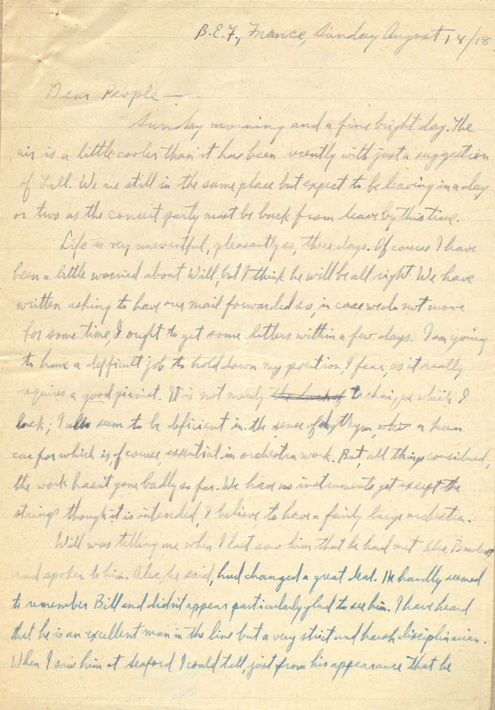 B.E.F., France, Sunday August 18/18
Dear People —
Sunday morning and a fine bright day. The
air is a little cooler than it has been recently with just a suggestion
of Fall. We are still in the same place but expect to be leaving in a day
or two as the concert party must be back from leave by this time.
Life is very uneventful, pleasantly so, these days. Of course I have
been a little worried about Will, but I think he will be all right. We have
written asking to have our mail forwarded so, in case we do not move
for some time, I ought to get some letters within a few days. I am going
to have a difficult job to hold down my position I fear, as it really
requires a good pianist. It is not merely technique which I
lack; I also seem to be deficient in the sense of rhythym, a keen
ear for which is, of course, essential in orchestra work. But, all things considered,
the work hasn't gone badly so far. We have no instruments yet except the
strings though it is intended, I believe to have a fairly large orchestra.
Will was telling me when I last saw him that he had met Alec
and spoken to him. Alec, he said, had changed a great deal. He hardly seemed
to remember Bill and didn't appear particularly glad to see him. I have heard
that he is an excellent man in the line but a very strict and harsh disciplinarian.
When I saw him at Seaford I could tell, just from his appearance that he